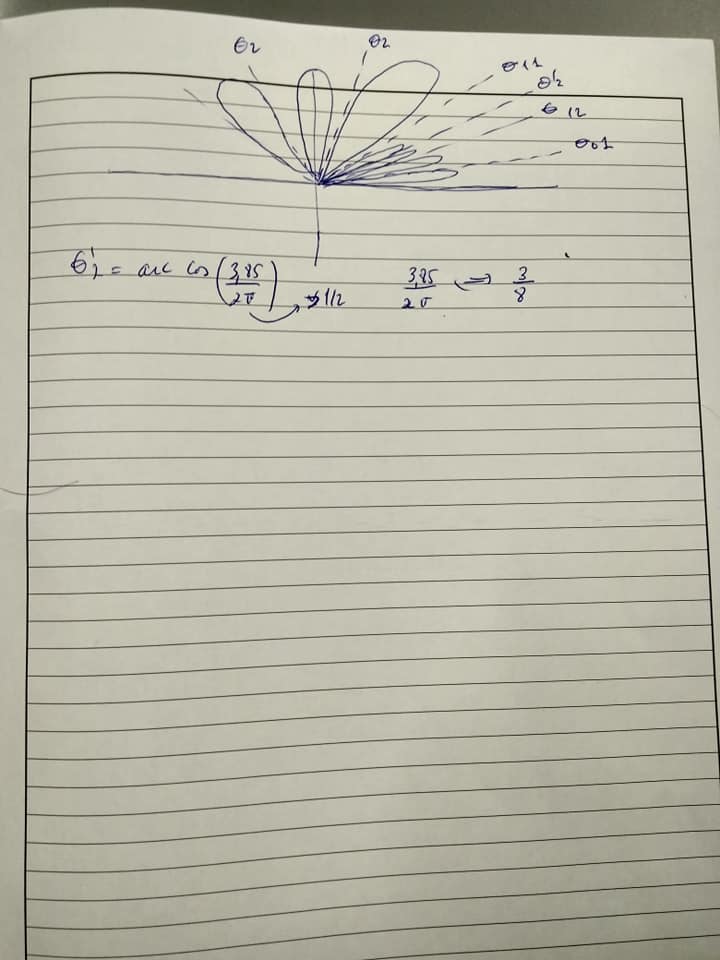 θ2 θ2
θ11
θ'2
θ12
θ01
θ'2 = arc cos (3,85/2π) → 1/2 3,85/2π ⇒ 3/8